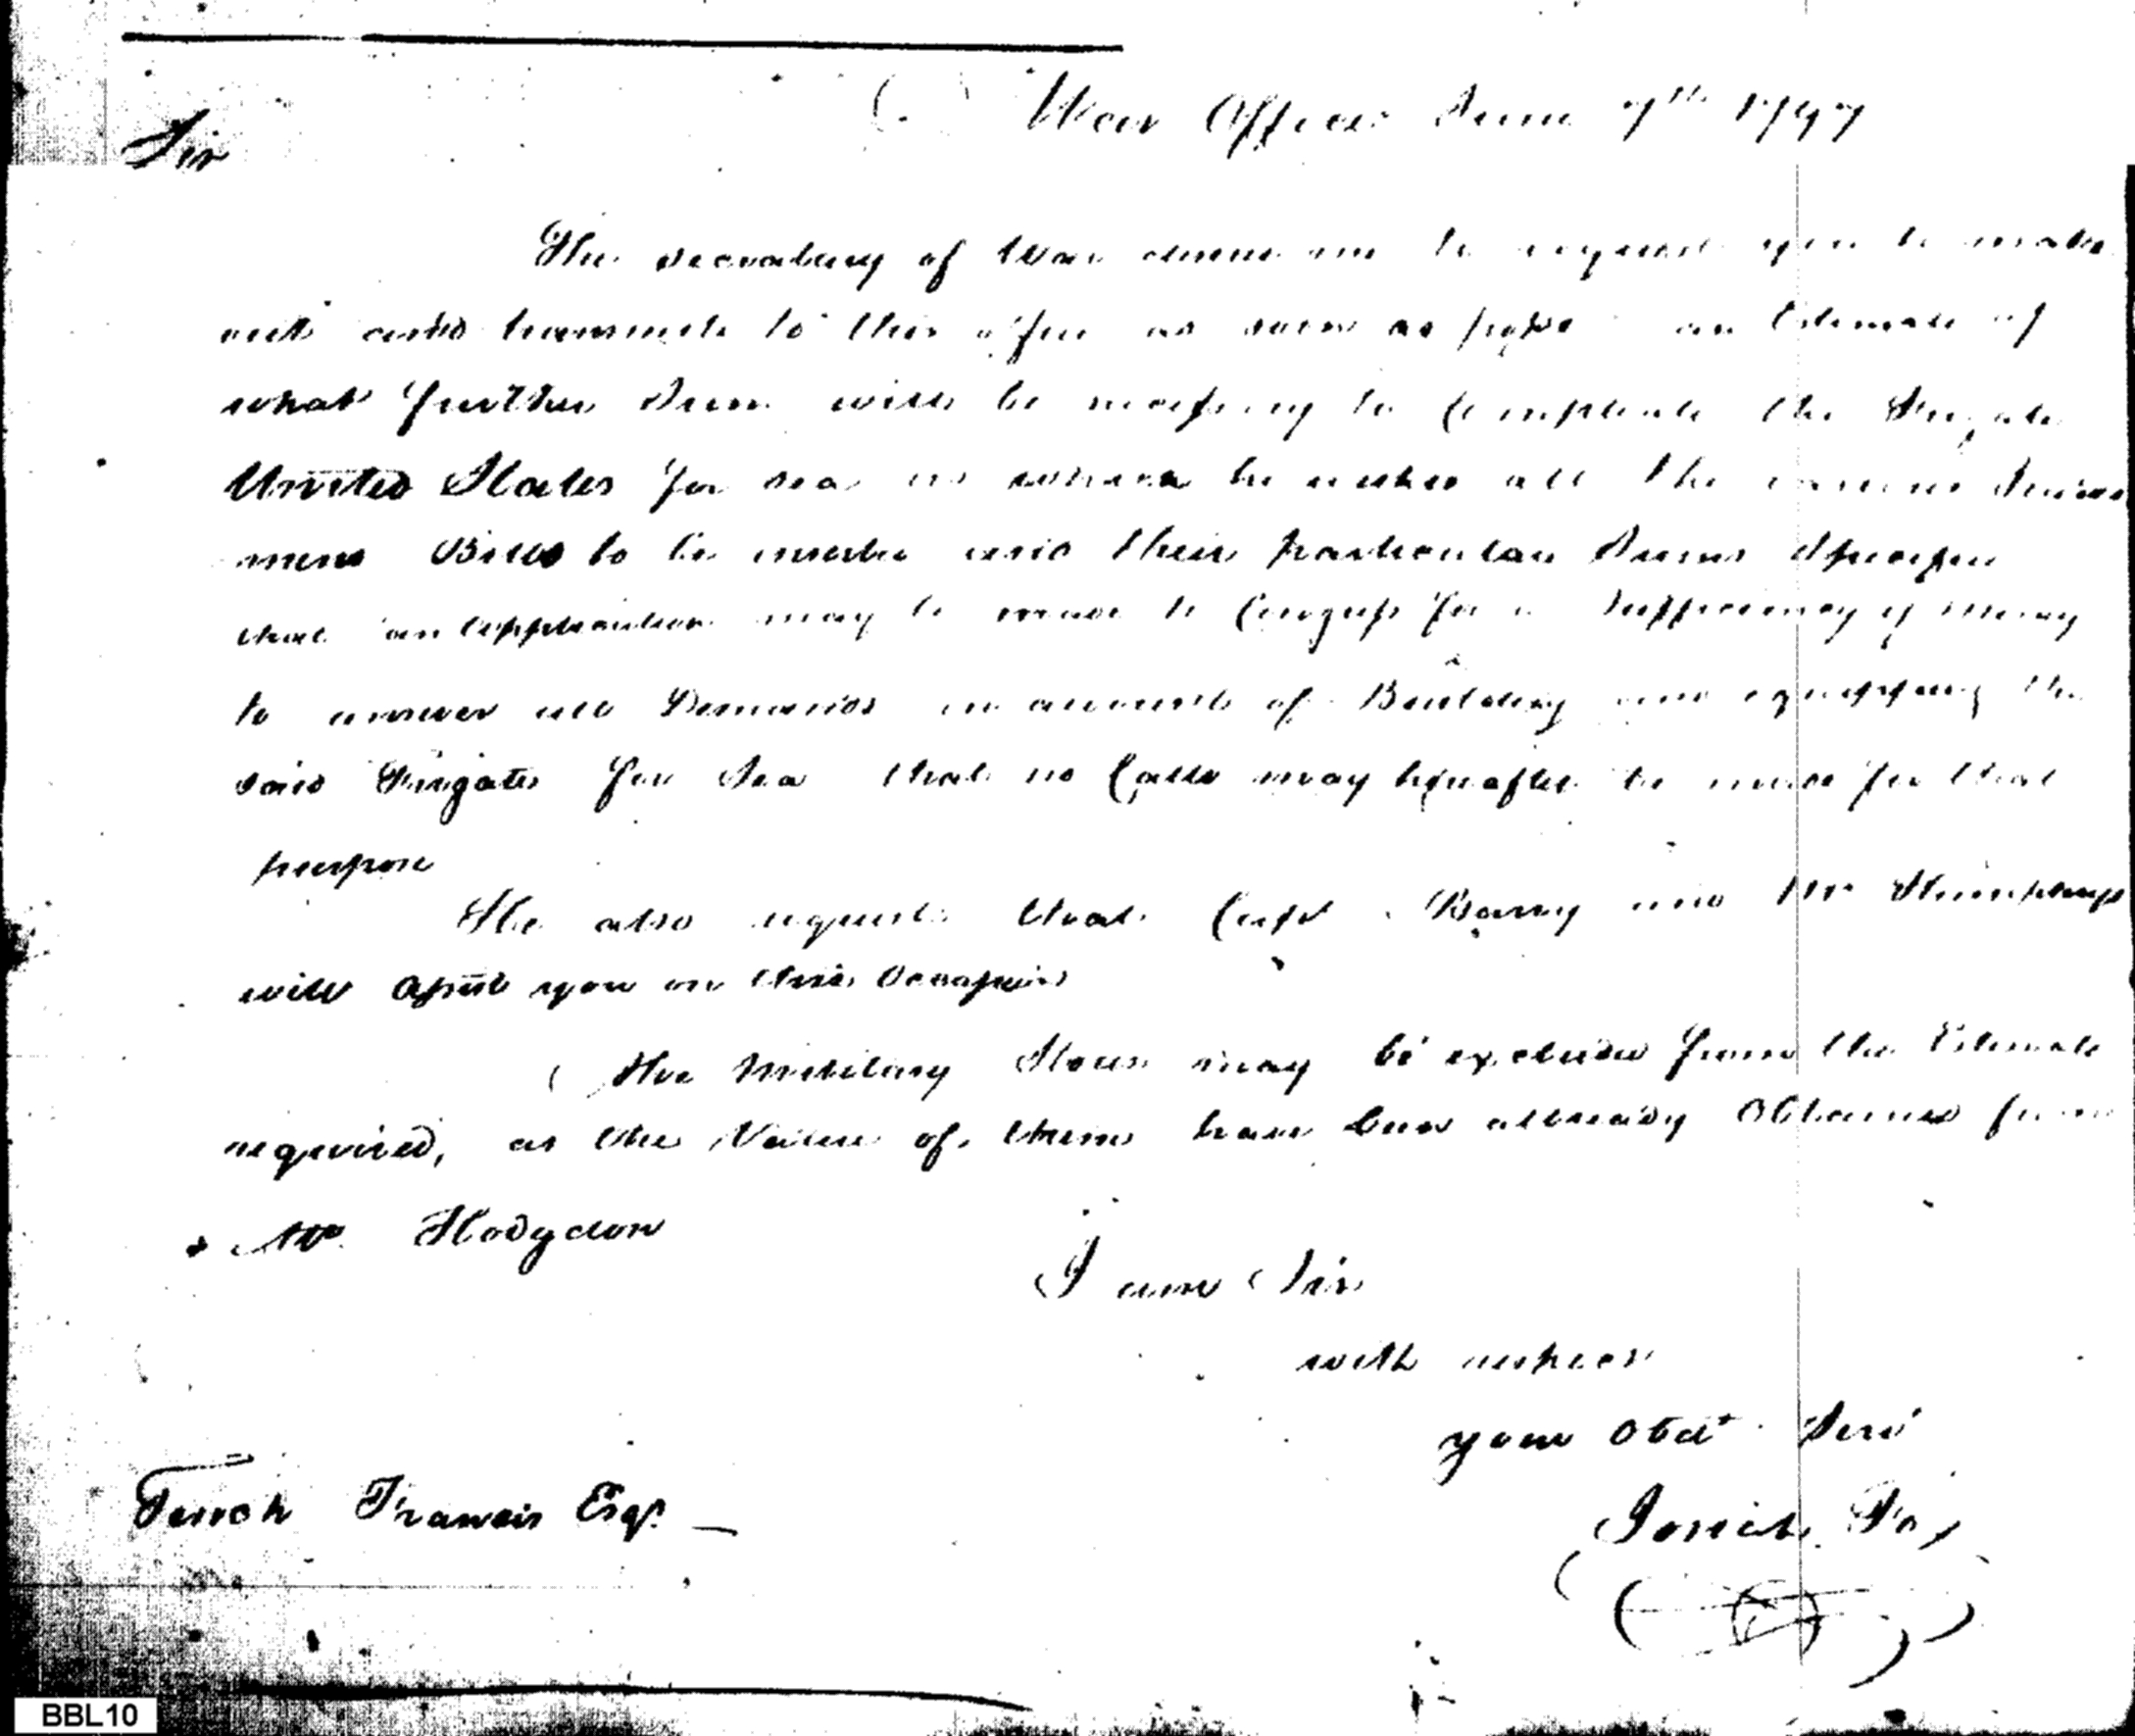 War Office June 7th 1797
Sir
The secretary of War me to request you to make
out and transmit to this office as soon as an Estimate of
what further Sum will be necessary to Compleate the Frigate
United States for sea in which he wishes all the
Bills to be and their particular Sums
that an application may be made to Congress for a Sufficiency of Money
to answer all Demands on account of Building and equipping the
said Frigate for Sea that no Calls may hereafter be made for that
purpose
He also requests that Capt Barry and Mr Humphreys
will assist you on this Occasion
The Military Stores may be excluded from the Estimate
required, as the Value of them have been already Obtained from
Mr. Hodgdon
I am Sir
with respect
your Obdt Servt
Tench Francis Esqr.
Jonieh Fox
BBL10